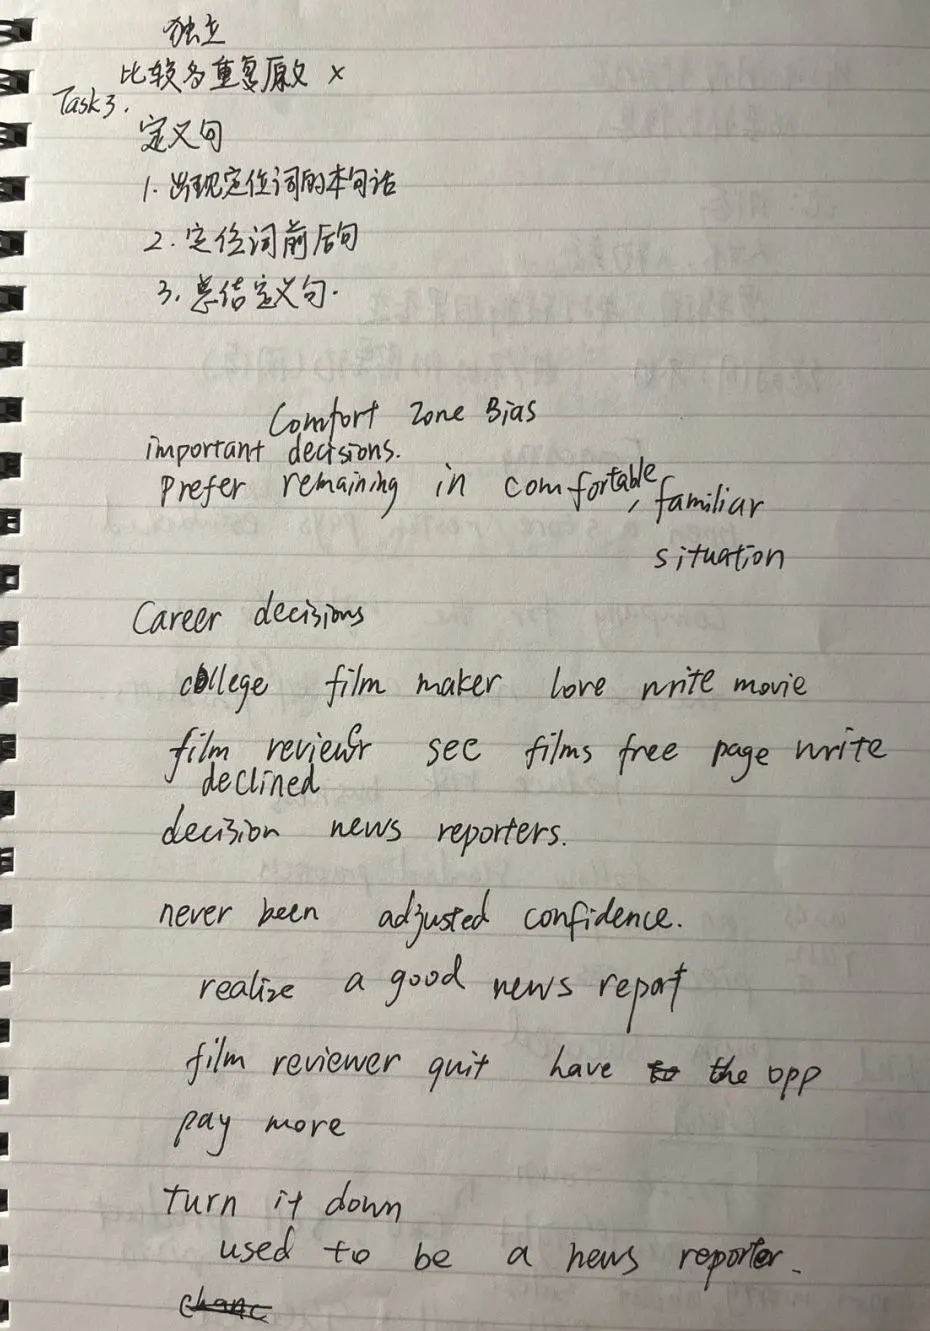 独立
比较多重复原文 ×
Task3.
定义句
1. 出现定位词的本句话
2. 定位词前后句
3. 总结定义句.
Comfort zone Bias
important decisions.
prefer remaining in comfortable, familiar
situation
Career decisions
college film maker love write movie
film reviewer see films free page write
declined
decision news reporters.
never been adjusted confidence.
realize a good news report
film reviewer quit have to the opp
pay more
turn it down
used to be a news reporter.
chanc